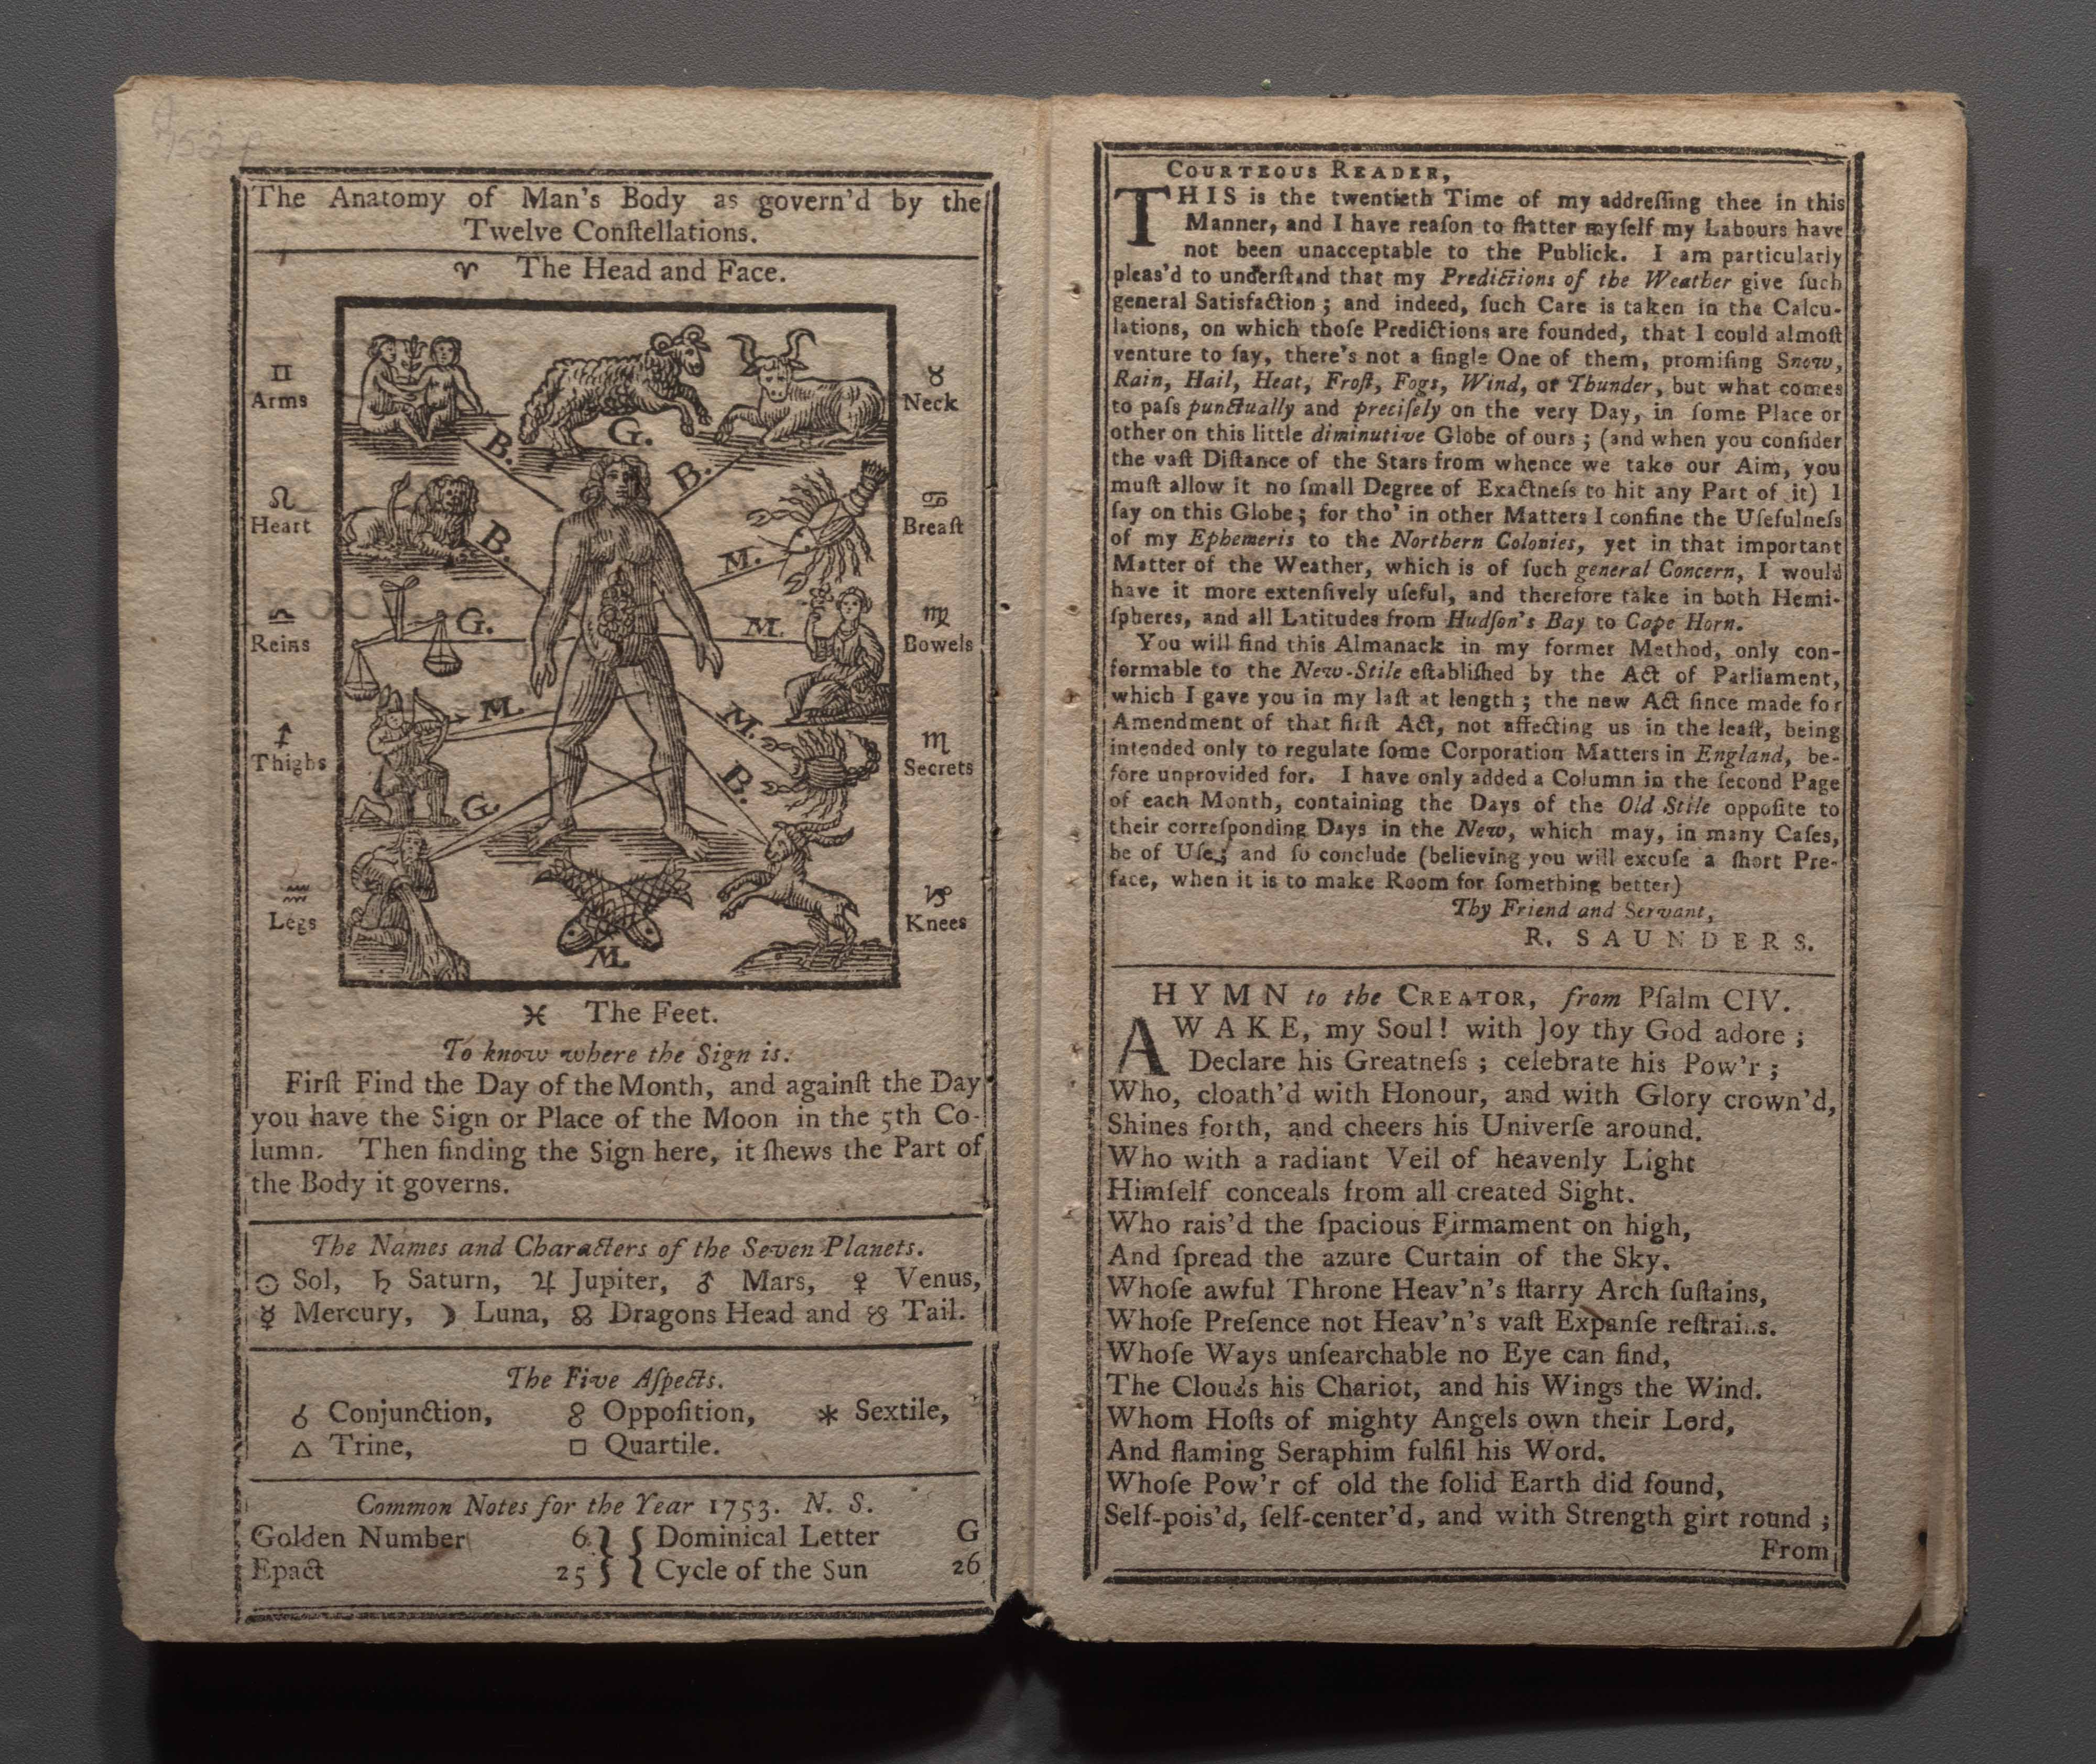 The Anatomy of Man's Body as govern'd by the
Twelve Conſtellations.
♈ The Head and Face.
♊
Arms
♉
Neck
B.
G.
B.
♌
Heart
♋
Breaſt
B.
M.
♎
Reins
♍
Bowels
G.
M.
♐
Thighs
♏
Secrets
M.
M.
B.
G.
♒
Legs
♑
Knees
M.
♓ The Feet.
To know where the Sign is.
Firſt Find the Day of the Month, and againſt the Day
you have the Sign or Place of the Moon in the 5th Co-
lumn. Then finding the Sign here, it ſhews the Part of
the Body it governs.
The Names and Characters of the Seven Planets.
☉ Sol, ♄ Saturn, ♃ Jupiter, ♂ Mars, ♀ Venus,
☿ Mercury, ☽ Luna, ☊ Dragons Head and ☋ Tail.
The Five Aſpects.
☌ Conjunction, ☍ Oppoſition, ⚹ Sextile,
△ Trine, □ Quartile.
Common Notes for the Year 1753. N. S.
Golden Number 6 } { Dominical Letter G
Epact 25 } { Cycle of the Sun 26
COURTEOUS READER,
THIS is the twentieth Time of my addreſſing thee in this
Manner, and I have reaſon to flatter myſelf my Labours have
not been unacceptable to the Publick. I am particularly
pleas'd to underſtand that my Predictions of the Weather give ſuch
general Satisfaction; and indeed, ſuch Care is taken in the Calcu-
lations, on which thoſe Predictions are founded, that I could almoſt
venture to ſay, there's not a ſingle One of them, promiſing Snow,
Rain, Hail, Heat, Froſt, Fogs, Wind, or Thunder, but what comes
to paſs punctually and preciſely on the very Day, in ſome Place or
other on this little diminutive Globe of ours; (and when you conſider
the vaſt Diſtance of the Stars from whence we take our Aim, you
muſt allow it no ſmall Degree of Exactneſs to hit any Part of it) I
ſay on this Globe; for tho' in other Matters I confine the Uſefulneſs
of my Ephemeris to the Northern Colonies, yet in that important
Matter of the Weather, which is of ſuch general Concern, I would
have it more extenſively uſeful, and therefore take in both Hemi-
ſpheres, and all Latitudes from Hudſon's Bay to Cape Horn.
You will find this Almanack in my former Method, only con-
formable to the New-Stile eſtabliſhed by the Act of Parliament,
which I gave you in my laſt at length; the new Act ſince made for
Amendment of that firſt Act, not affecting us in the leaſt, being
intended only to regulate ſome Corporation Matters in England, be-
fore unprovided for. I have only added a Column in the ſecond Page
of each Month, containing the Days of the Old Stile oppoſite to
their correſponding Days in the New, which may, in many Caſes,
be of Uſe; and ſo conclude (believing you will excuſe a ſhort Pre-
face, when it is to make Room for ſomething better)
Thy Friend and Servant,
R. SAUNDERS.
HYMN to the CREATOR, from Pſalm CIV.
AWAKE, my Soul! with Joy thy God adore;
Declare his Greatneſs; celebrate his Pow'r;
Who, cloath'd with Honour, and with Glory crown'd,
Shines forth, and cheers his Univerſe around.
Who with a radiant Veil of heavenly Light
Himſelf conceals from all created Sight.
Who rais'd the ſpacious Firmament on high,
And ſpread the azure Curtain of the Sky.
Whoſe awful Throne Heav'n's ſtarry Arch ſuſtains,
Whoſe Preſence not Heav'n's vaſt Expanſe reſtrains.
Whoſe Ways unſearchable no Eye can find,
The Clouds his Chariot, and his Wings the Wind.
Whom Hoſts of mighty Angels own their Lord,
And flaming Seraphim fulfil his Word.
Whoſe Pow'r of old the ſolid Earth did found,
Self-pois'd, ſelf-center'd, and with Strength girt round;
From